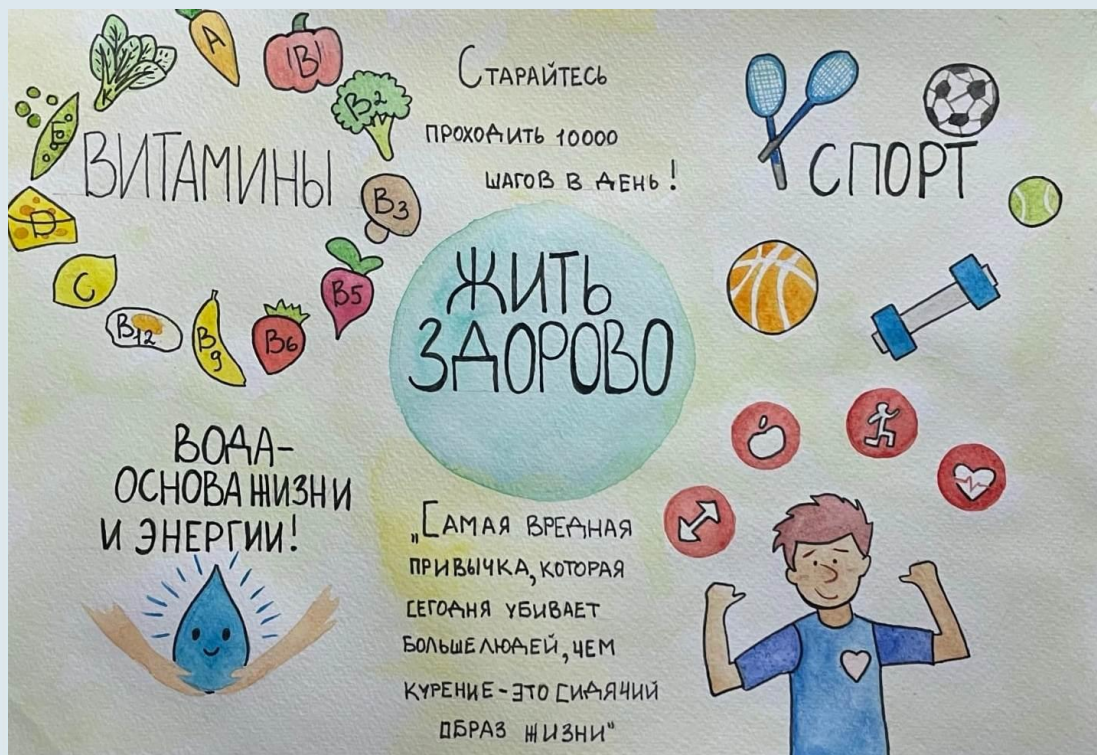 ВИТАМИНЫ
K
A
B2
B3
B5
B6
B9
B12
C
D
СТАРАЙТЕСЬ
ПРОХОДИТЬ 10000
ШАГОВ В ДЕНЬ!
СПОРТ
ЖИТЬ
ЗДОРОВО
ВОДА-
ОСНОВА ЖИЗНИ
И ЭНЕРГИИ!
„САМАЯ ВРЕДНАЯ
ПРИВЫЧКА, КОТОРАЯ
СЕГОДНЯ УБИВАЕТ
БОЛЬШЕ ЛЮДЕЙ, ЧЕМ
КУРЕНИЕ - ЭТО СИДЯЧИЙ
ОБРАЗ ЖИЗНИ"